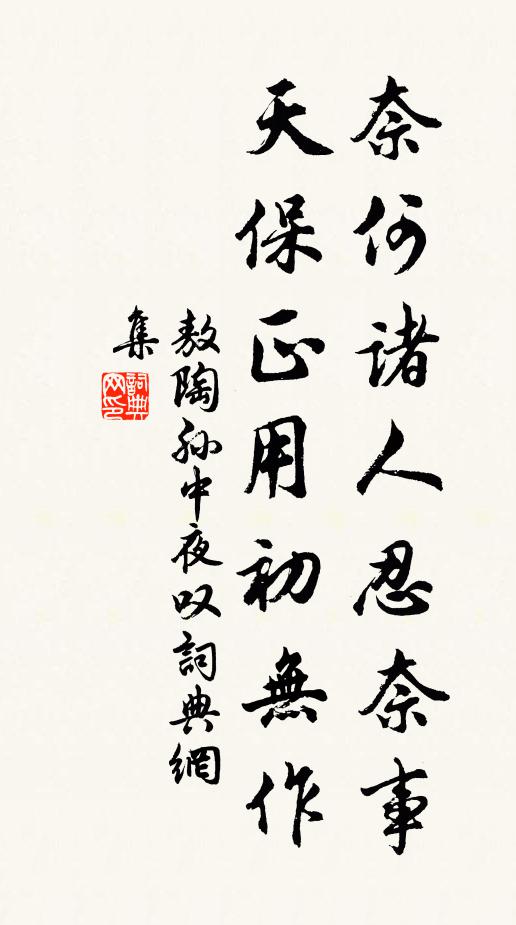 奈何諸人忍奈事
天保正用初無作
敖陶孙中夜叹詞典網
集
詞典
网印